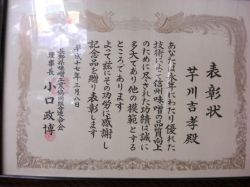 表彰状
芋川吉孝殿
あなたは永年にわたり優れた
技術によって信州味噌の品質向上
のために尽された功績は誠に
多大であり他の模範とする
ところであります
よって茲にその功労に感謝し
記念品を贈り表彰します
平成十七年三月八日
長野県味噌工業協同組合連合会
理事長 小口政博